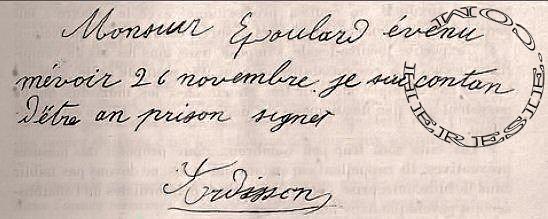 Monsieur Epoulard évenu
mévoir 26 novembre je sui contan
d'être an prison signer
Ardisson
HERESIE.COM